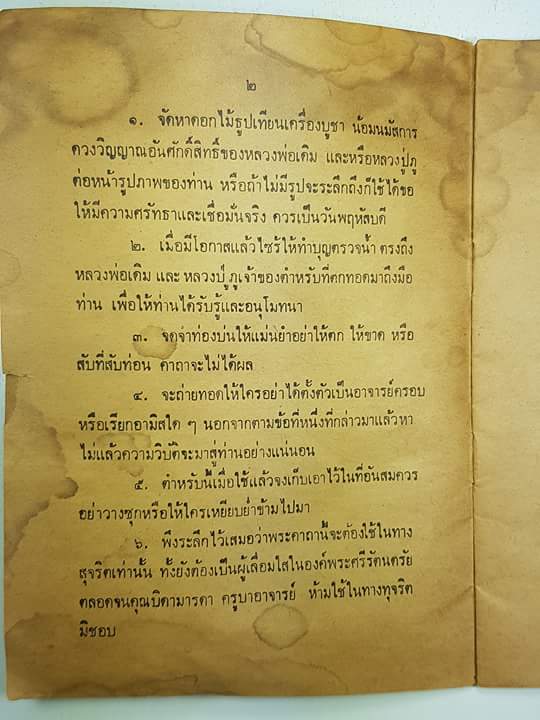 ๒
๑. จัดหาดอกไม้ธูปเทียนเครื่องบูชา น้อมนมัสการ
ดวงวิญญาณอันศักดิ์สิทธิ์ของหลวงพ่อเดิม และหรือหลวงปู่ภู
ต่อหน้ารูปภาพของท่าน หรือถ้าไม่มีรูปจะระลึกถึงก็ใช้ได้ขอ
ให้มีความศรัทธาและเชื่อมั่นจริง ควรเป็นวันพฤหัสบดี
๒. เมื่อมีโอกาสแล้วไซร้ให้ทำบุญตรวจน้ำ ตรงถึง
หลวงพ่อเดิม และ หลวงปู่ ภูเจ้าของตำหรับที่ตกทอดมาถึงมือ
ท่าน เพื่อให้ท่านได้รับรู้และอนุโมทนา
๓. จดจำท่องบ่นให้แม่นยำอย่าให้ตก ให้ขาด หรือ
สับที่สับท่อน คาถาจะไม่ได้ผล
๔. จะถ่ายทอดให้ใครอย่าได้ตั้งตัวเป็นอาจารย์ครอบ
หรือเรียกอามิสใด ๆ นอกจากตามข้อที่หนึ่งที่กล่าวมาแล้วหา
ไม่แล้วความวิบัติจะมาสู่ท่านอย่างแน่นอน
๕. ตำหรับนี้เมื่อใช้แล้วจงเก็บเอาไว้ในที่อันสมควร
อย่าวางซุกหรือให้ใครเหยียบย่ำข้ามไปมา
๖. พึงระลึกไว้เสมอว่าพระคาถานี้จะต้องใช้ในทาง
สุจริตเท่านั้น ทั้งยังต้องเป็นผู้เลื่อมใสในองค์พระศรีรัตนตรัย
ตลอดจนคุณบิดามารดา ครูบาอาจารย์ ห้ามใช้ในทางทุจริต
มิชอบ